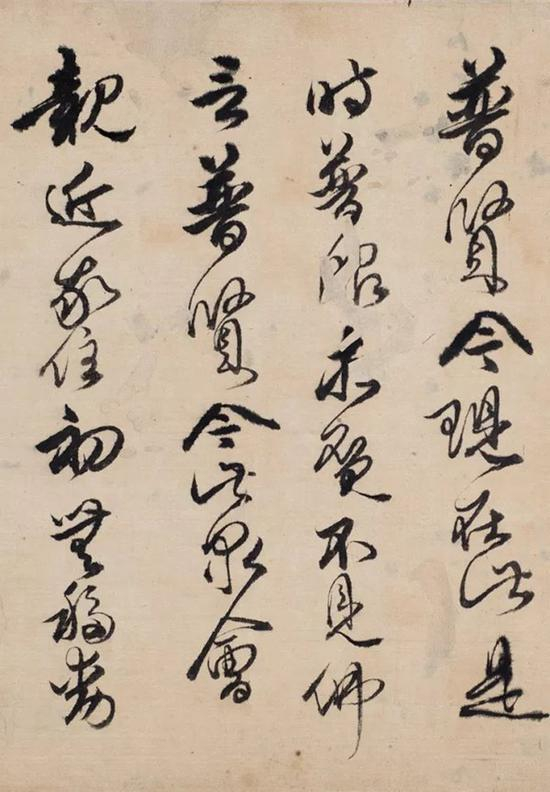 普賢今現在此是
時普眼求覓不見佛
言普賢今此眾會
親近我住初無移動